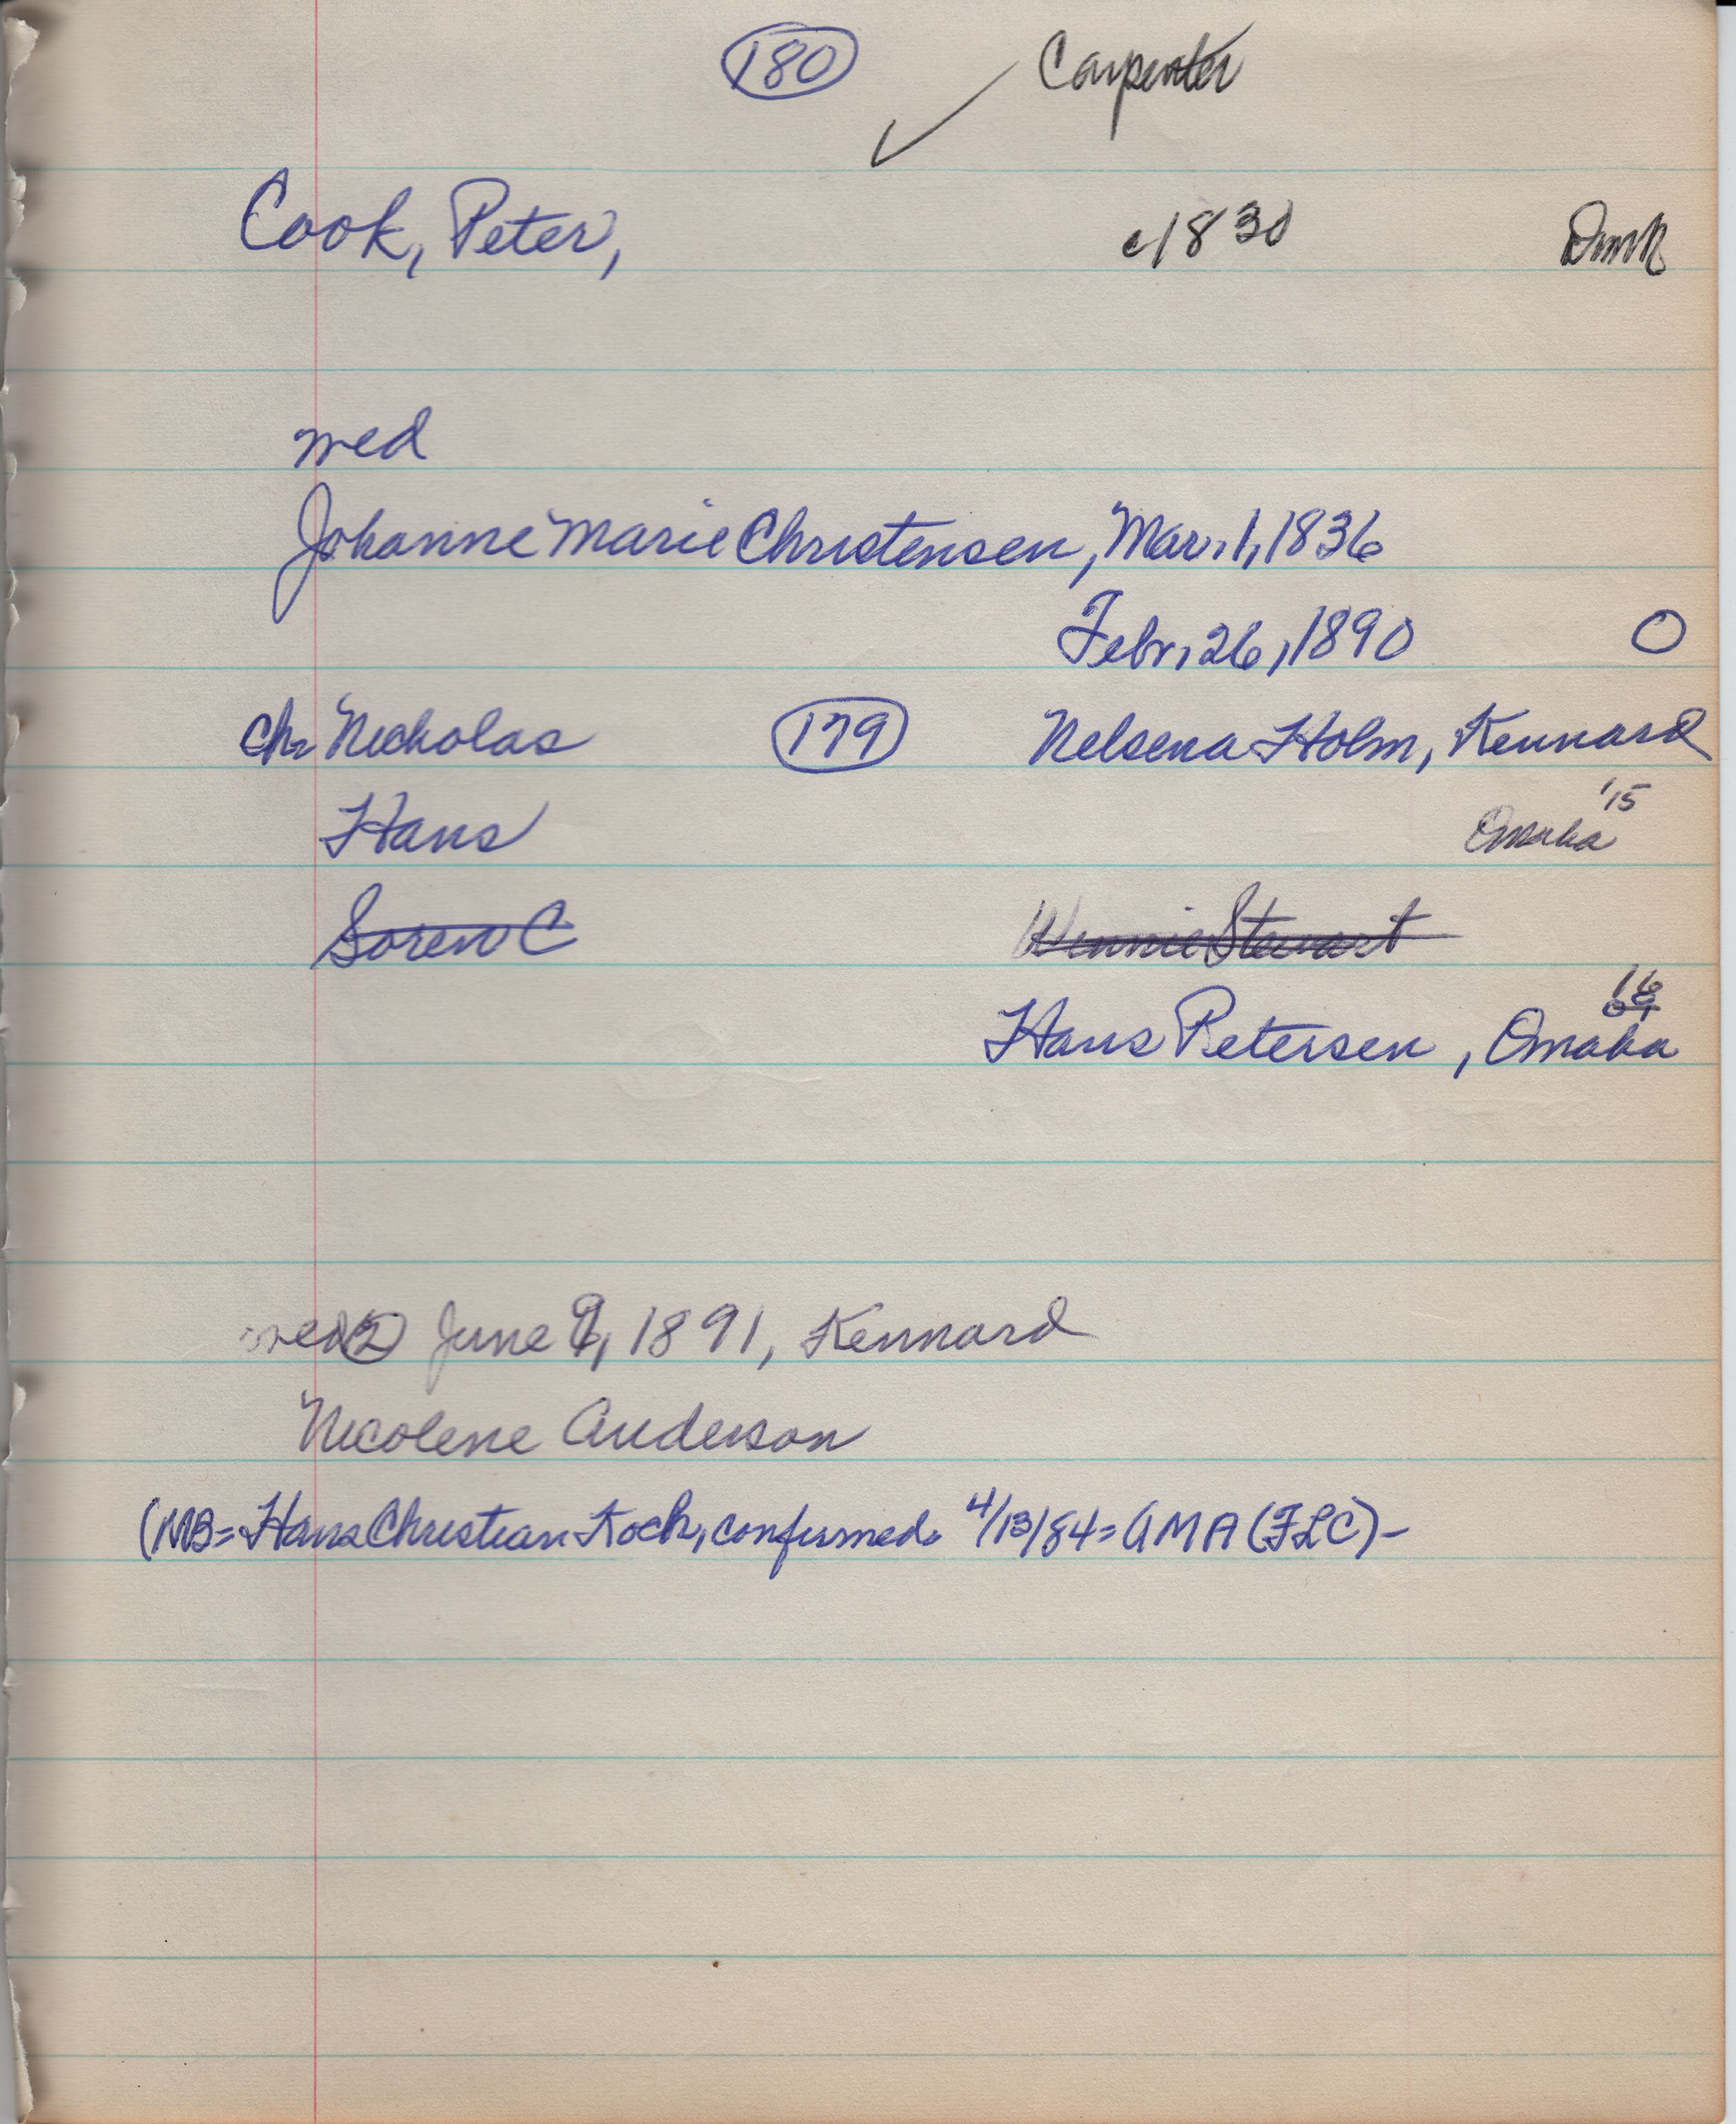 180 Carpenter
Cook, Peter, c1830 Dmk
wed
Johanne Marie Christensen, Mar. 1, 1836
Febr. 26, 1890 O
Ch. Nicholas 179 Nelsena Holm, Kennard
'15
Hans Omaha
Soren C Winnie Stewart
16
Hans Petersen, Omaha
wed 2 June 9, 1891, Kennard
Nicolene Anderson
(MB = Hans Christian Koch, confirmed. 4/13/84 = GMA (FLC) -